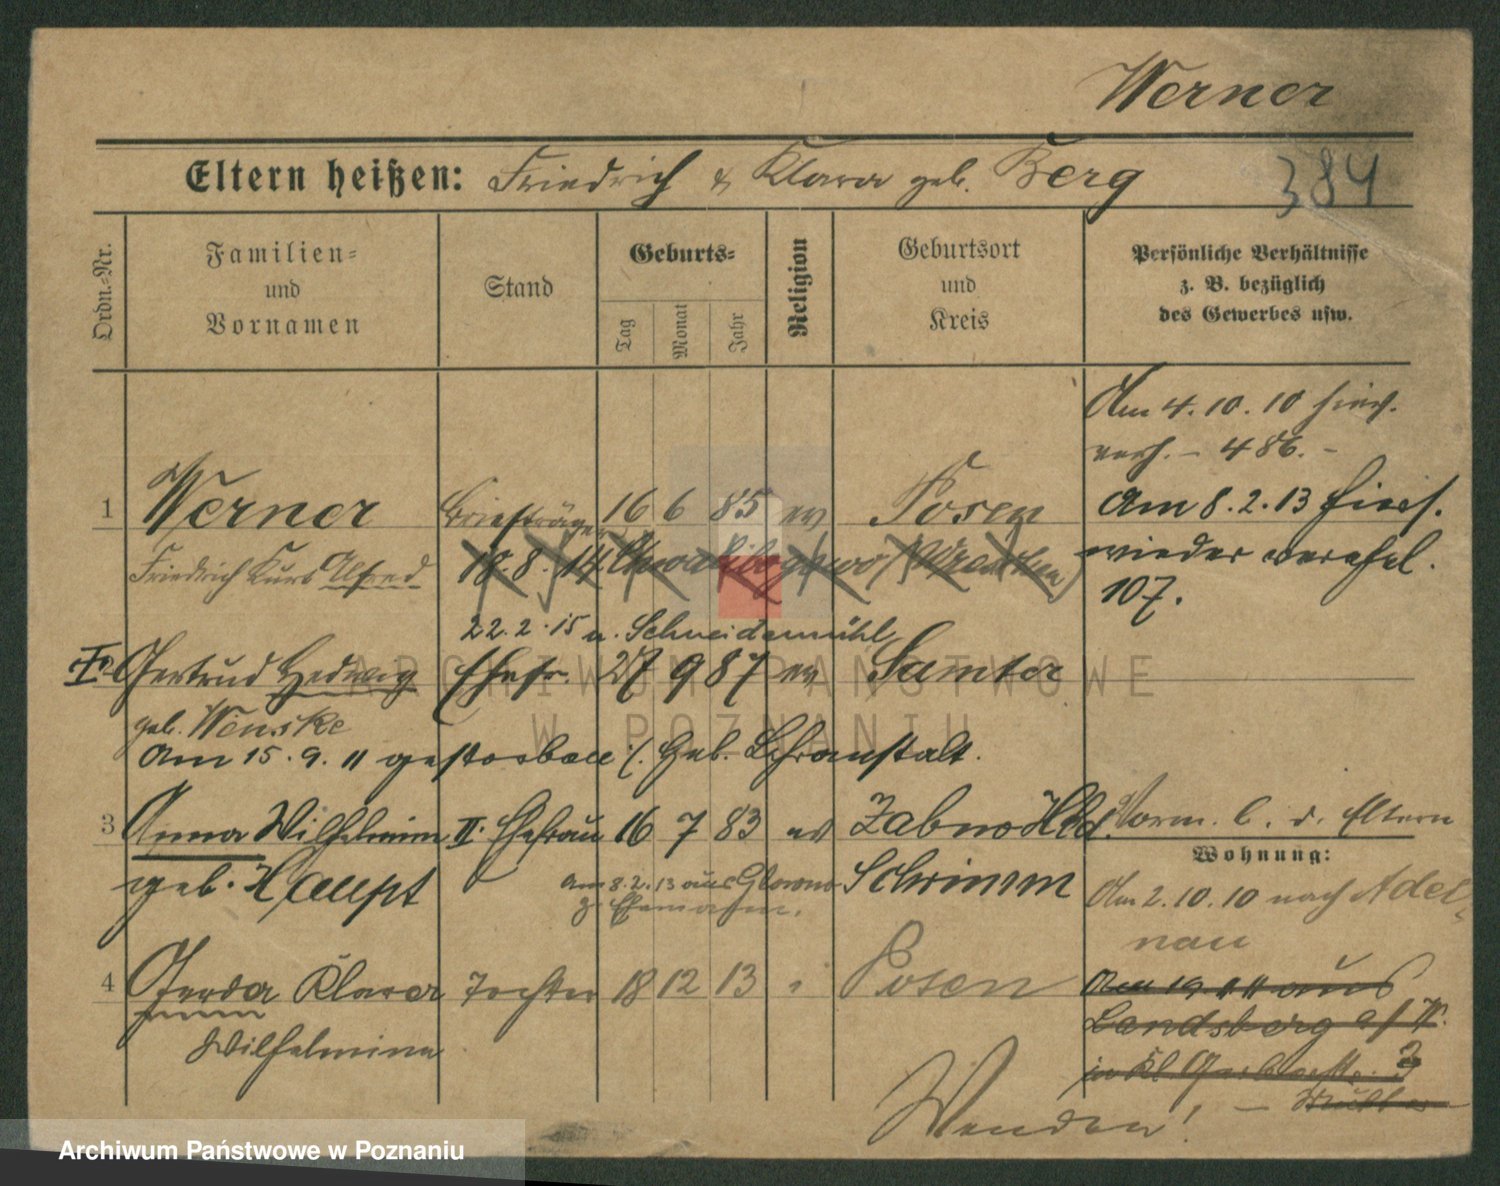 Werner
Eltern heißen: Friedrich & Klara geb. Berg
384
Ordn.-Nr.
Familien-
und
Vornamen
Stand
Geburts-
Tag
Monat
Jahr
Religion
Geburtsort
und
Kreis
Persönliche Verhältnisse
z. B. bezüglich
des Gewerbes usw.
Am 4.10.10 hier
verh. – 486. –
1 Werner Briefträger 16 6 85 ev Posen
Am 8.2.13 hier
wieder verehel.
107.
Friedrich Kurt Alfred
18.8.14
22.2.15 n. Schneidemühl
Gertrud Hedwig Ehefr. 27 9 87 ev Samter
geb. Wenske
Am 15.9.11 gestorben i. Geb. Lehranstalt.
3 Anna Wilhelmine II. Ehefrau 16 7 83 ev Zabno Hld.
geb. Haupt
Schrimm
am 8.2.13 aus
z. Ehemann.
Vorm. b. d. Eltern
Wohnung:
Am 2.10.10 nach Adel-
nau
4 Gerda Klara Tochter 18 12 13 Posen
Wilhelmine
Am 19 11 aus
Landsberg a/W.
in Kl. Gerberstr. 3
Wenden!
ARCHIWUM PAŃSTWOWE
W POZNANIU
Archiwum Państwowe w Poznaniu